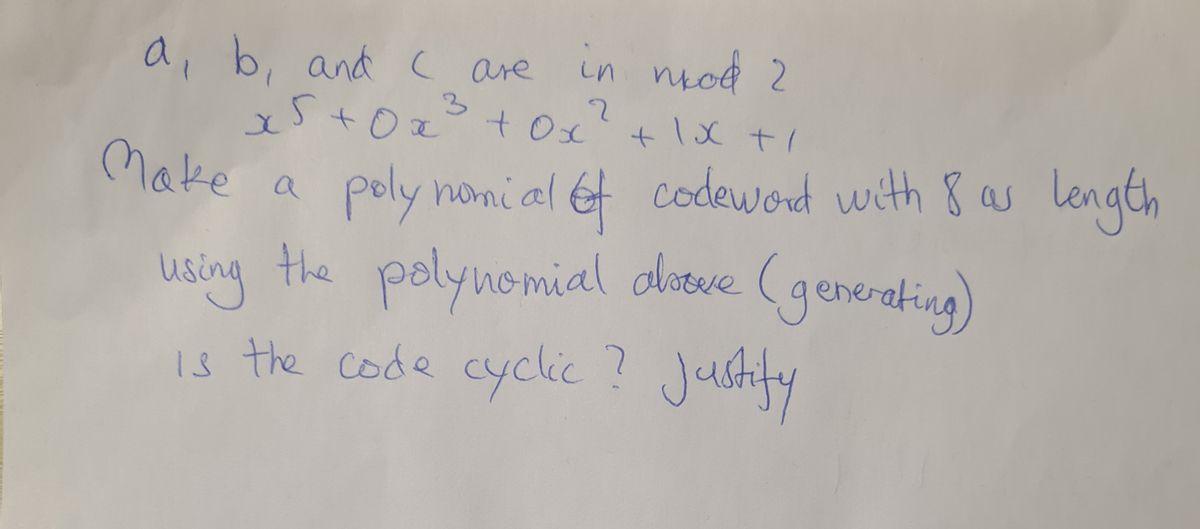 a, b, and c are in mod 2
x⁵ + 0x³ + 0x² + 1x + 1
Make a polynomial of codeword with 8 as length
using the polynomial above (generating)
is the code cyclic? Justify